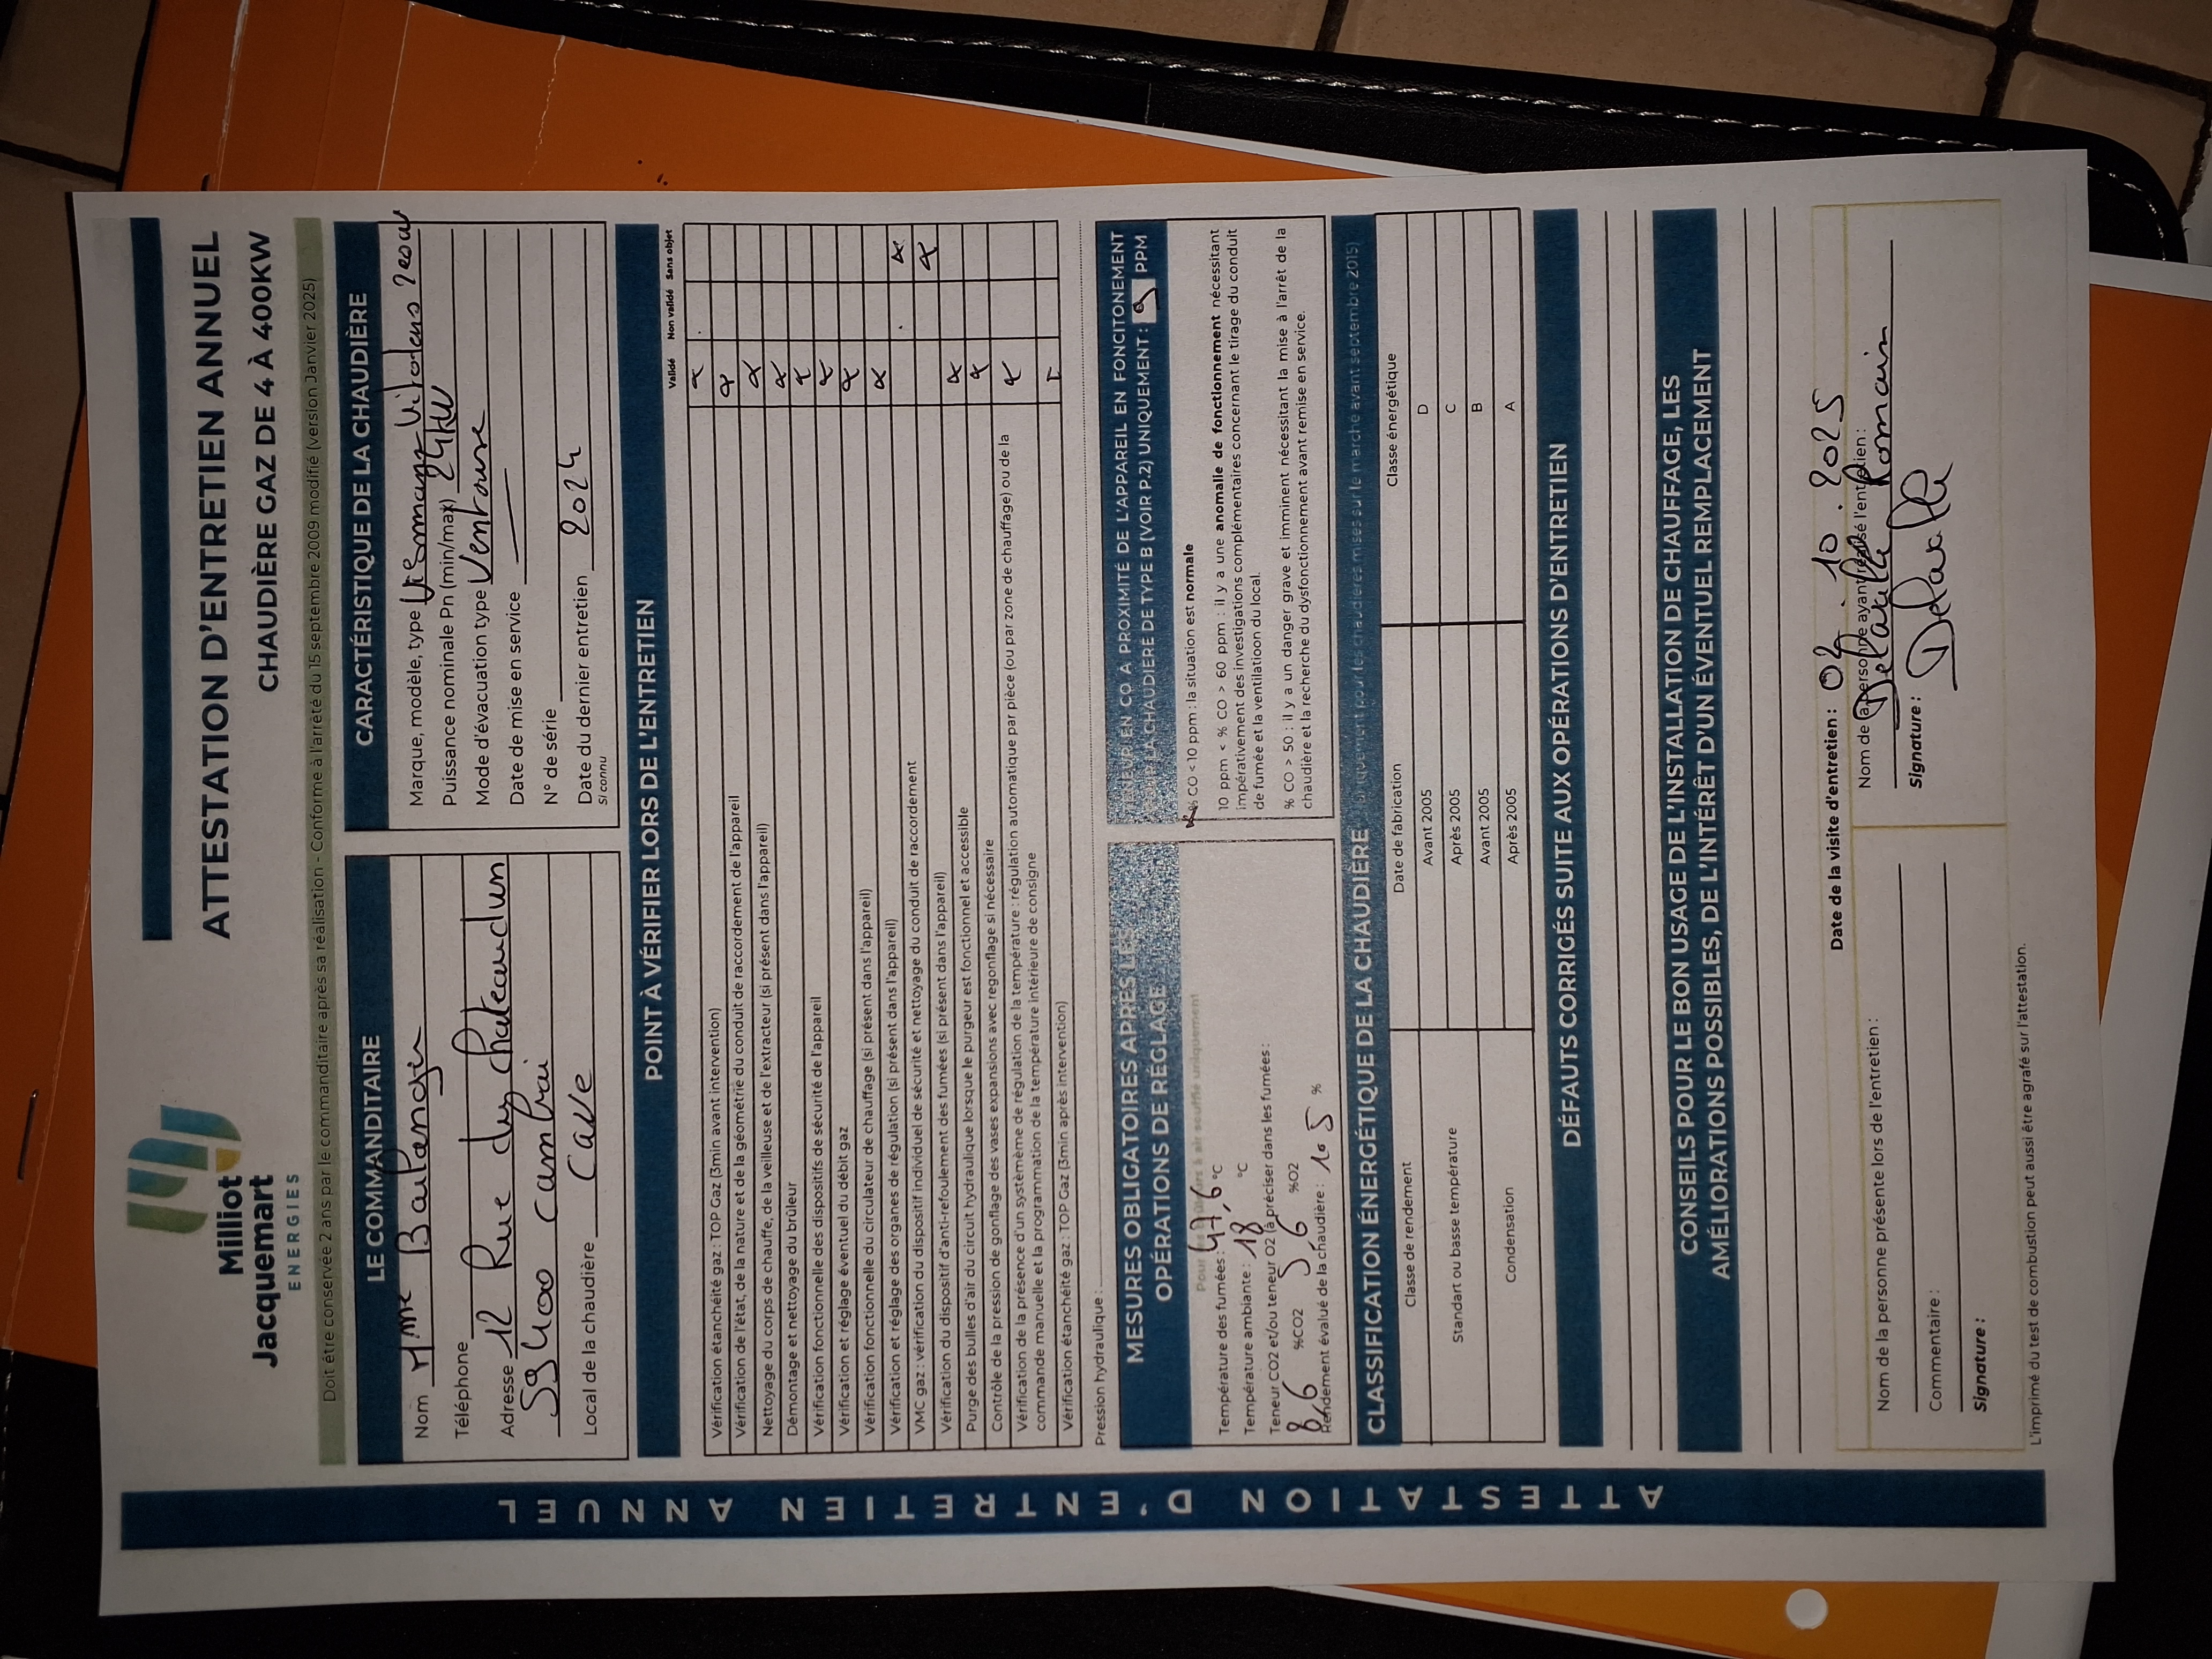 Milliot
Jacquemart
ENERGIES
ATTESTATION D'ENTRETIEN ANNUEL
CHAUDIÈRE GAZ DE 4 À 400KW
Doit être conservée 2 ans par le commanditaire après sa réalisation - Conforme à l'arrêté du 15 septembre 2009 modifié (version Janvier 2025)
LE COMMANDITAIRE
Nom Mme Boulanger
Téléphone
Adresse 12 Rue du Chateaudun
59400 Cambrai
Local de la chaudière Cave
CARACTÉRISTIQUE DE LA CHAUDIÈRE
Marque, modèle, type Viessmann Vitodens 200W
Puissance nominale Pn (min/max) 24kW
Mode d'évacuation type Ventouse
Date de mise en service
N° de série
Date du dernier entretien 2024
Si connu
POINT À VÉRIFIER LORS DE L'ENTRETIEN
Validé Non validé Sans objet
Vérification étanchéité gaz : TOP Gaz (3min avant intervention)
Vérification de l'état, de la nature et de la géométrie du conduit de raccordement de l'appareil
Nettoyage du corps de chauffe, de la veilleuse et de l'extracteur (si présent dans l'appareil)
Démontage et nettoyage du brûleur
Vérification fonctionnelle des dispositifs de sécurité de l'appareil
Vérification et réglage éventuel du débit gaz
Vérification fonctionnelle du circulateur de chauffage (si présent dans l'appareil)
Vérification et réglage des organes de régulation (si présent dans l'appareil)
VMC gaz : vérification du dispositif individuel de sécurité et nettoyage du conduit de raccordement
Vérification du dispositif d'anti-refoulement des fumées (si présent dans l'appareil)
Purge des bulles d'air du circuit hydraulique lorsque le purgeur est fonctionnel et accessible
Contrôle de la pression de gonflage des vases expansions avec regonflage si nécessaire
Vérification de la présence d'un système de régulation de la température : régulation automatique par pièce (ou par zone de chauffage) ou de la
commande manuelle et la programmation de la température intérieure de consigne
Vérification étanchéité gaz : TOP Gaz (3min après intervention)
Pression hydraulique :
MESURES OBLIGATOIRES APRÈS LES
OPÉRATIONS DE RÉGLAGE
Pour les brûleurs à air soufflé uniquement
Température des fumées : 47,6 °C
Température ambiante : 18 °C
Teneur CO2 et/ou teneur O2 (à préciser dans les fumées :
8,6 %CO2 5,6 %O2
Rendement évalué de la chaudière : 105 %
TENEUR EN CO À PROXIMITÉ DE L'APPAREIL EN FONCITONEMENT
POUR LA CHAUDIÈRE DE TYPE B (VOIR P.2) UNIQUEMENT : 9 PPM
% CO <10 ppm : la situation est normale
10 ppm < % CO > 60 ppm : il y a une anomalie de fonctionnement nécessitant
impérativement des investigations complémentaires concernant le tirage du conduit
de fumée et la ventilatioon du local.
% CO > 50 : il y a un danger grave et imminent nécessitant la mise à l'arrêt de la
chaudière et la recherche du dysfonctionnement avant remise en service.
CLASSIFICATION ÉNERGÉTIQUE DE LA CHAUDIÈRE uniquement pour les chaudières mises sur le marché avant septembre 2015)
Classe de rendement Date de fabrication Classe énergétique
Standart ou basse température Avant 2005 D
Après 2005 C
Condensation Avant 2005 B
Après 2005 A
DÉFAUTS CORRIGÉS SUITE AUX OPÉRATIONS D'ENTRETIEN
CONSEILS POUR LE BON USAGE DE L'INSTALLATION DE CHAUFFAGE, LES
AMÉLIORATIONS POSSIBLES, DE L'INTÉRÊT D'UN ÉVENTUEL REMPLACEMENT
Date de la visite d'entretien : 02.10.2025
Nom de la personne présente lors de l'entretien :
Commentaire :
Signature :
Nom de la personne ayant réalisé l'entretien :
Delvalle Romain
Signature :
L'imprimé du test de combustion peut aussi être agrafé sur l'attestation.
ATTESTATION D'ENTRETIEN ANNUEL